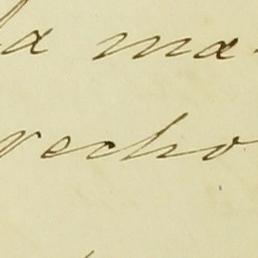 la ma
recho